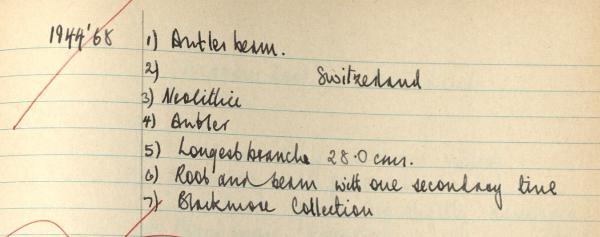 1944'68 1) Antler beam.
2) Switzerland
3) Neolithic
4) Antler
5) Longest branch 28.0 cms.
6) Root and beam with one secondary tine
7) Blackmore Collection